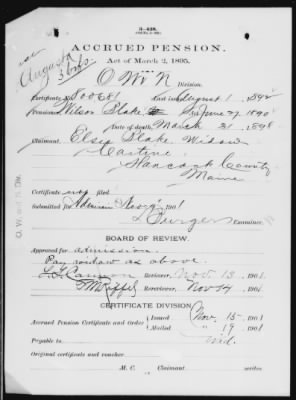 3-428.
ACCRUED PENSION.
Act of March 2, 1895.
Augusta
3 cops
O W & N Division.
Certificate No. 800681 Last in August 1 189
Pensioner Wilson Blake June 27, 1890
Date of death, March 31, 1898
Claimant Elsea Blake Widow
Castine
Hancock County
Maine
Certificate not filed
Submitted for Admission Nov 9 1901
L. Burger Examiner.
BOARD OF REVIEW.
Approved for admission.
Pay widow as above.
Cannon Reviewer, Nov. 13, 1901
T M Reviewer, Nov 14, 1901
CERTIFICATE DIVISION
Accrued Pension Certificate and Order
Issued Nov. 15, 1901
Mailed " 19, 1901
Payable to Wid.
Original certificate and voucher
M. C. Claimant writes
O. W. and N. Div.